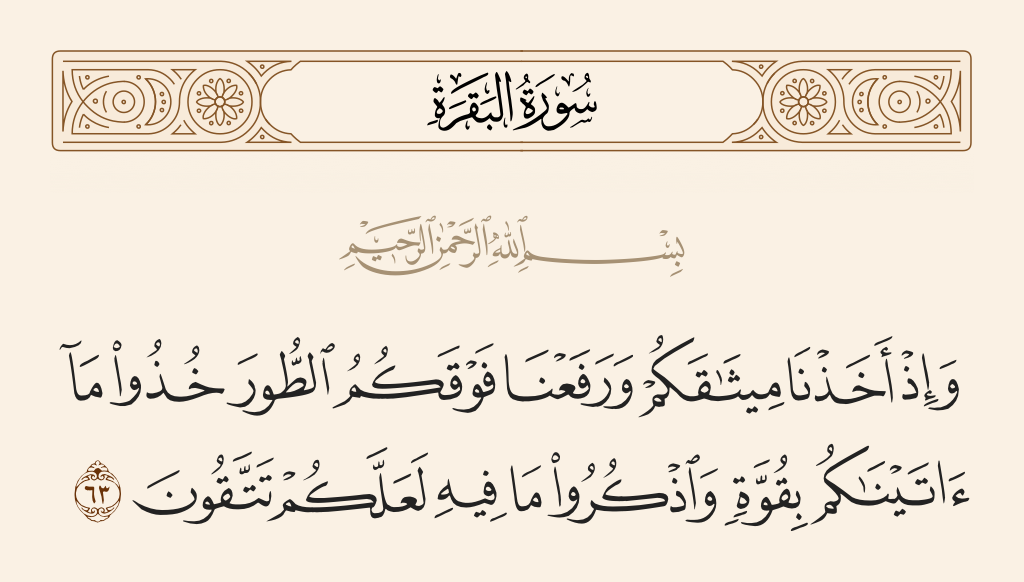 سُورَةُ البَقَرَةِ
بِسْمِ ٱللَّهِ ٱلرَّحْمَٰنِ ٱلرَّحِيمِ
وَإِذْ أَخَذْنَا مِيثَٰقَكُمْ وَرَفَعْنَا فَوْقَكُمُ ٱلطُّورَ خُذُوا۟ مَآ
ءَاتَيْنَٰكُم بِقُوَّةٍ وَٱذْكُرُوا۟ مَا فِيهِ لَعَلَّكُمْ تَتَّقُونَ ٦٣